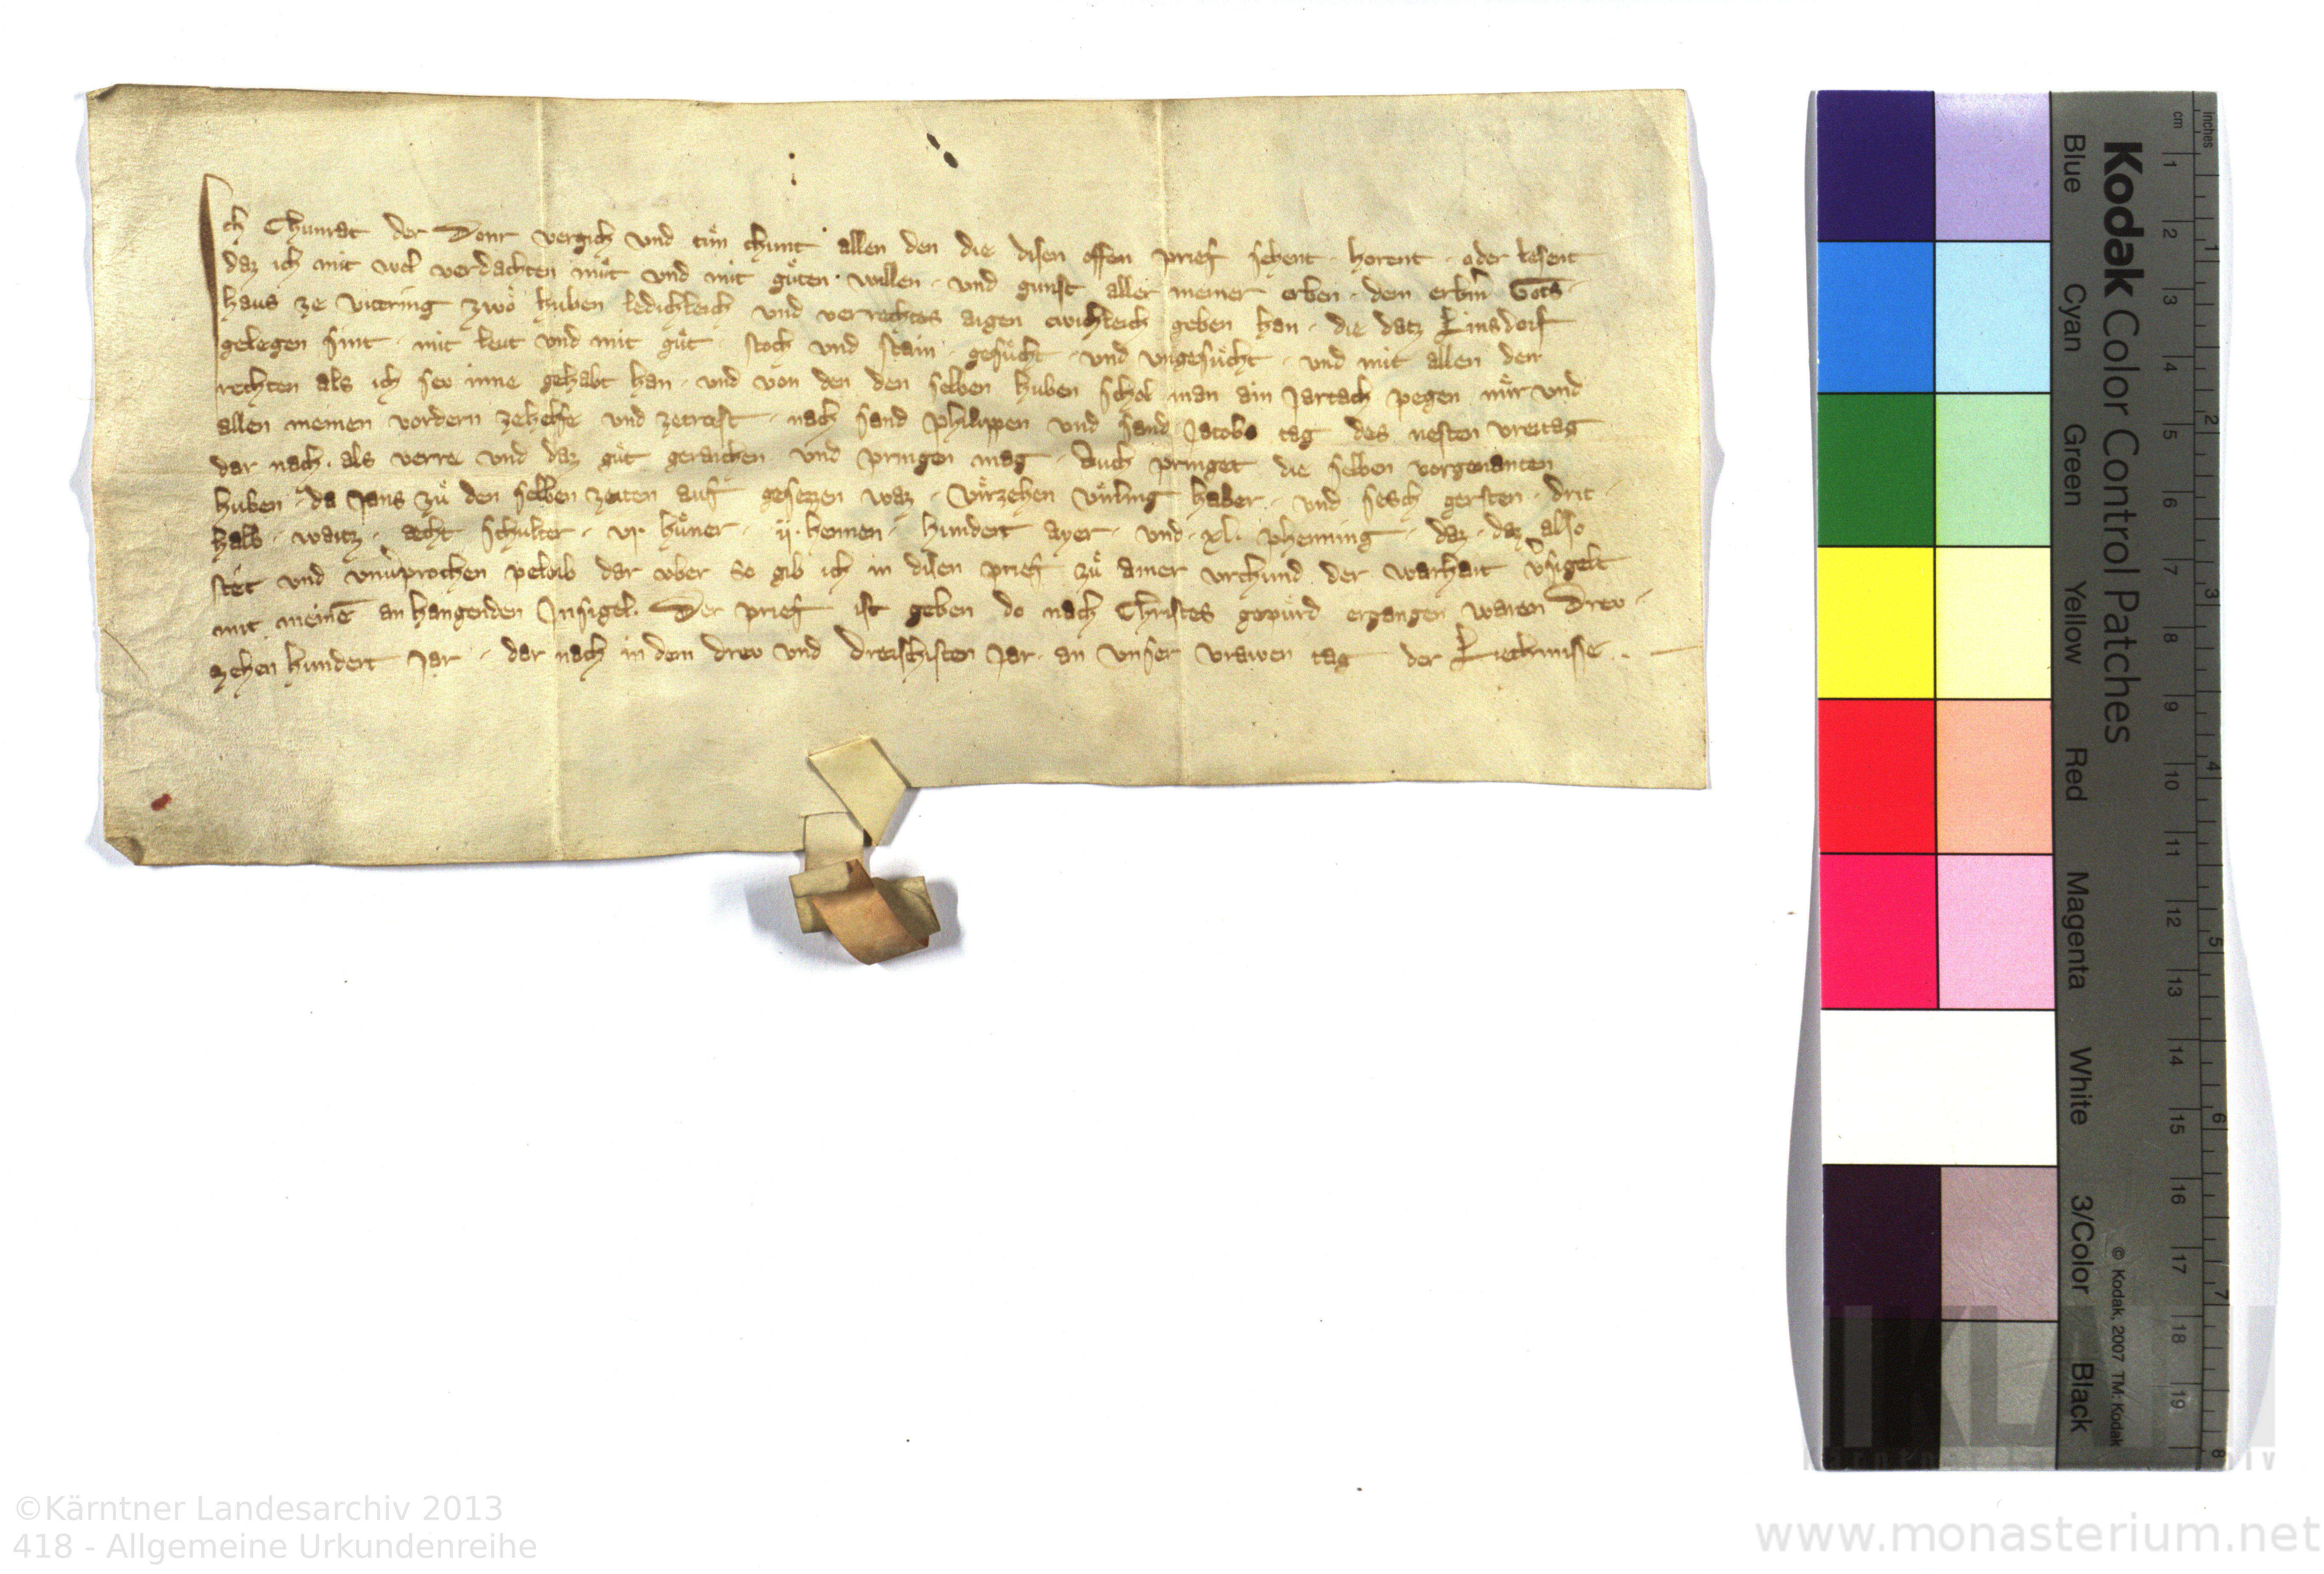 Ich Chunrat der Donr vergich vnd tuͦn chunt allen den die disen offen prief sehent · horent · oder lesent
daz ich mit wol verdachten muͦt vnd mit guͦten · willen · vnd gunst aller meiner erben · dem erbͤrn Gots-
haus ze victring zwo huben ledichleich vnd verrechtes aigen ewichleich geben han · die datz Linsdorf
gelegen sint · mit leut vnd mit guͦt · stoch vnd stain · gesuͦcht · vnd vngesuͦcht · vnd mit allen den
rechten als ich sev inne gehabt han · vnd von den den selben huben schol man ain Jartach pegen mir vnd
allen meinen vordern zehelfe vnd zetrost · nach sand Philippen vnd sand Jacobs tag des nesten vreitag
dar nach · als verre vnd daz guͦt geraichen vnd pringen mag · Auch pringet die selben vorgenanten
huben · da Jans zuͦ den selben zeiten auf gesezzen waz · virzehen virling haber · vnd sesch gersten · drit
halb · waitz · acht schulter · vi · huͤner · ij · hennen · hundert ayer · vnd · xl · phenning · daz · daz also
stet vnd vnuͦprochen peleib dar vber so gib ich in disen prief zuͦ ainer vrchund der warhait vͦsigelt
mit meinē an hangenden Insigel · Der prief ist geben do nach Christes gepurd ergangen waren Drev-
zehen hundert Jar · dar nach in dem drev vnd dreischisten Jar · an vnser vrawen tag der Liechmisse ·
Kodak Color Control Patches
Blue Cyan Green Yellow Red Magenta White 3/Color Black
© Kodak, 2007 TM: Kodak
cm 1 2 3 4 5 6 7 8 9 10 11 12 13 14 15 16 17 18 19
inches 1 2 3 4 5 6 7 8
KLA
©Kärntner Landesarchiv 2013
418 - Allgemeine Urkundenreihe
www.monasterium.net